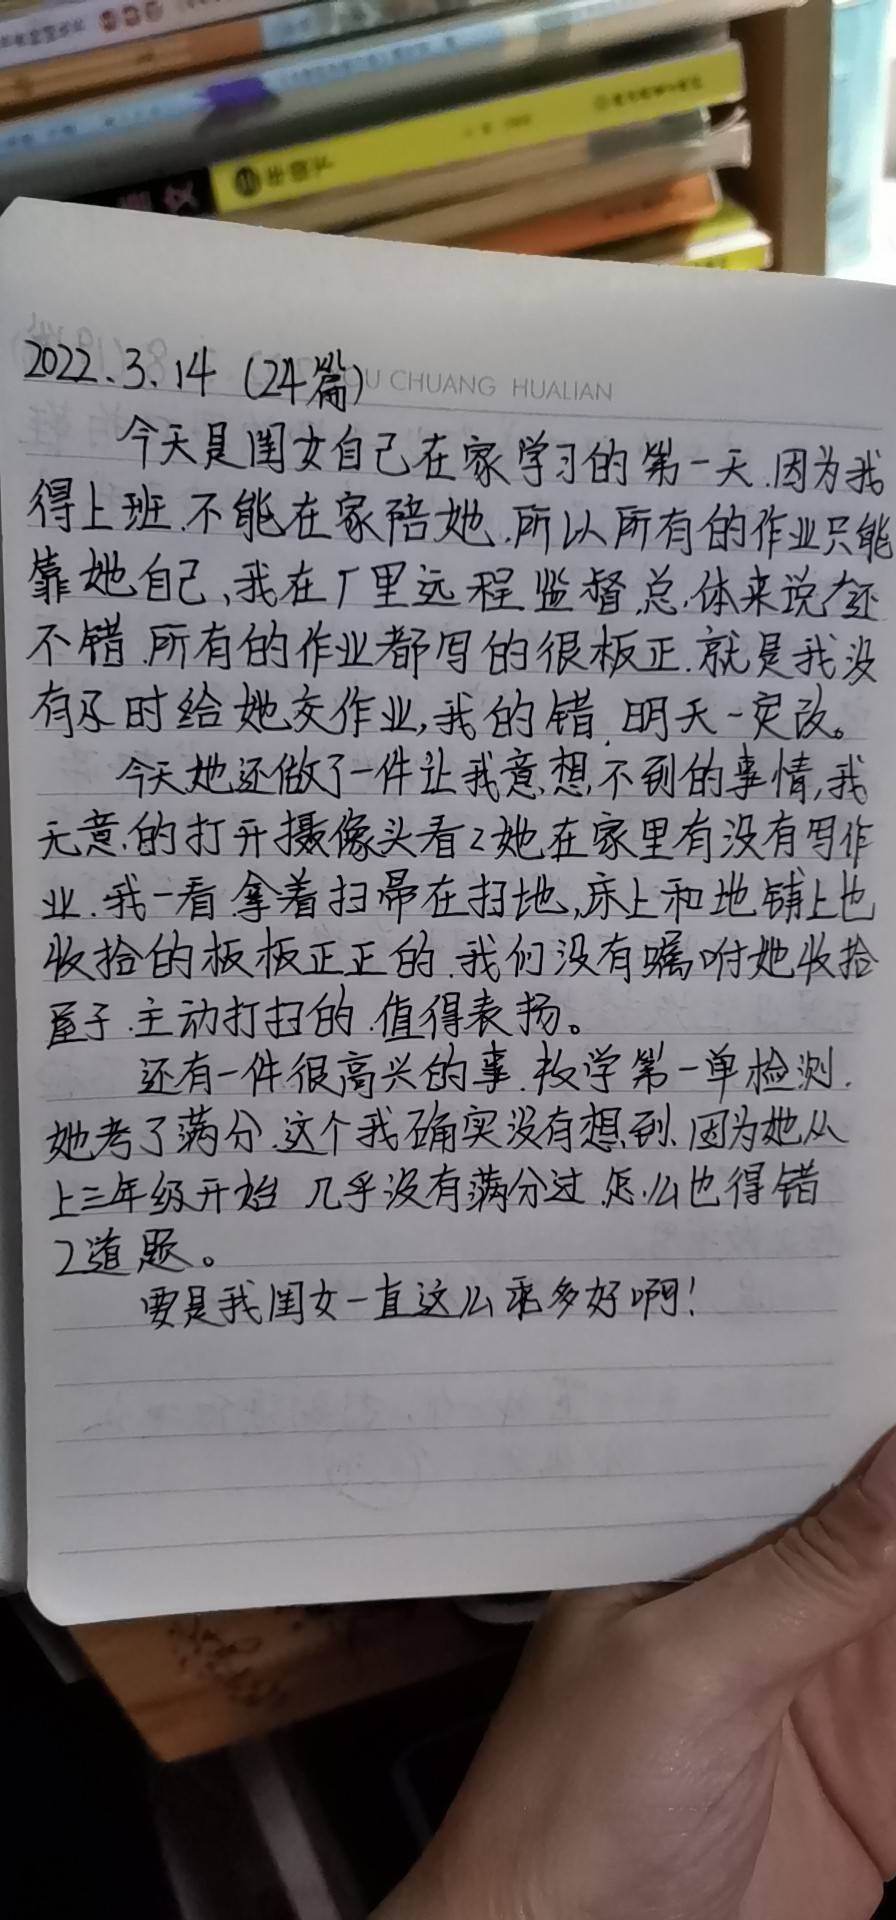 2022.3.14 (24篇)
CHUANG HUALIAN
今天是闺女自己在家学习的第一天.因为我
得上班.不能在家陪她.所以所有的作业只能
靠她自己、我在厂里远程监督.总体来说还
不错.所有的作业都写的很板正.就是我没
有及时给她交作业,我的错.明天一定改。
今天她还做了一件让我意想不到的事情,我
无意的打开摄像头看2她在家里有没有写作
业.我一看.拿着扫帚在扫地,床上和地铺上也
收拾的板板正正的.我们没有嘱咐她收拾
屋子.主动打扫的.值得表扬。
还有一件很高兴的事.教学第一单检测.
她考了满分.这个我确实没有想到.因为她从
上三年级开始 几乎没有满分过.怎么也得错
2道题。
要是我闺女一直这么乖多好啊!